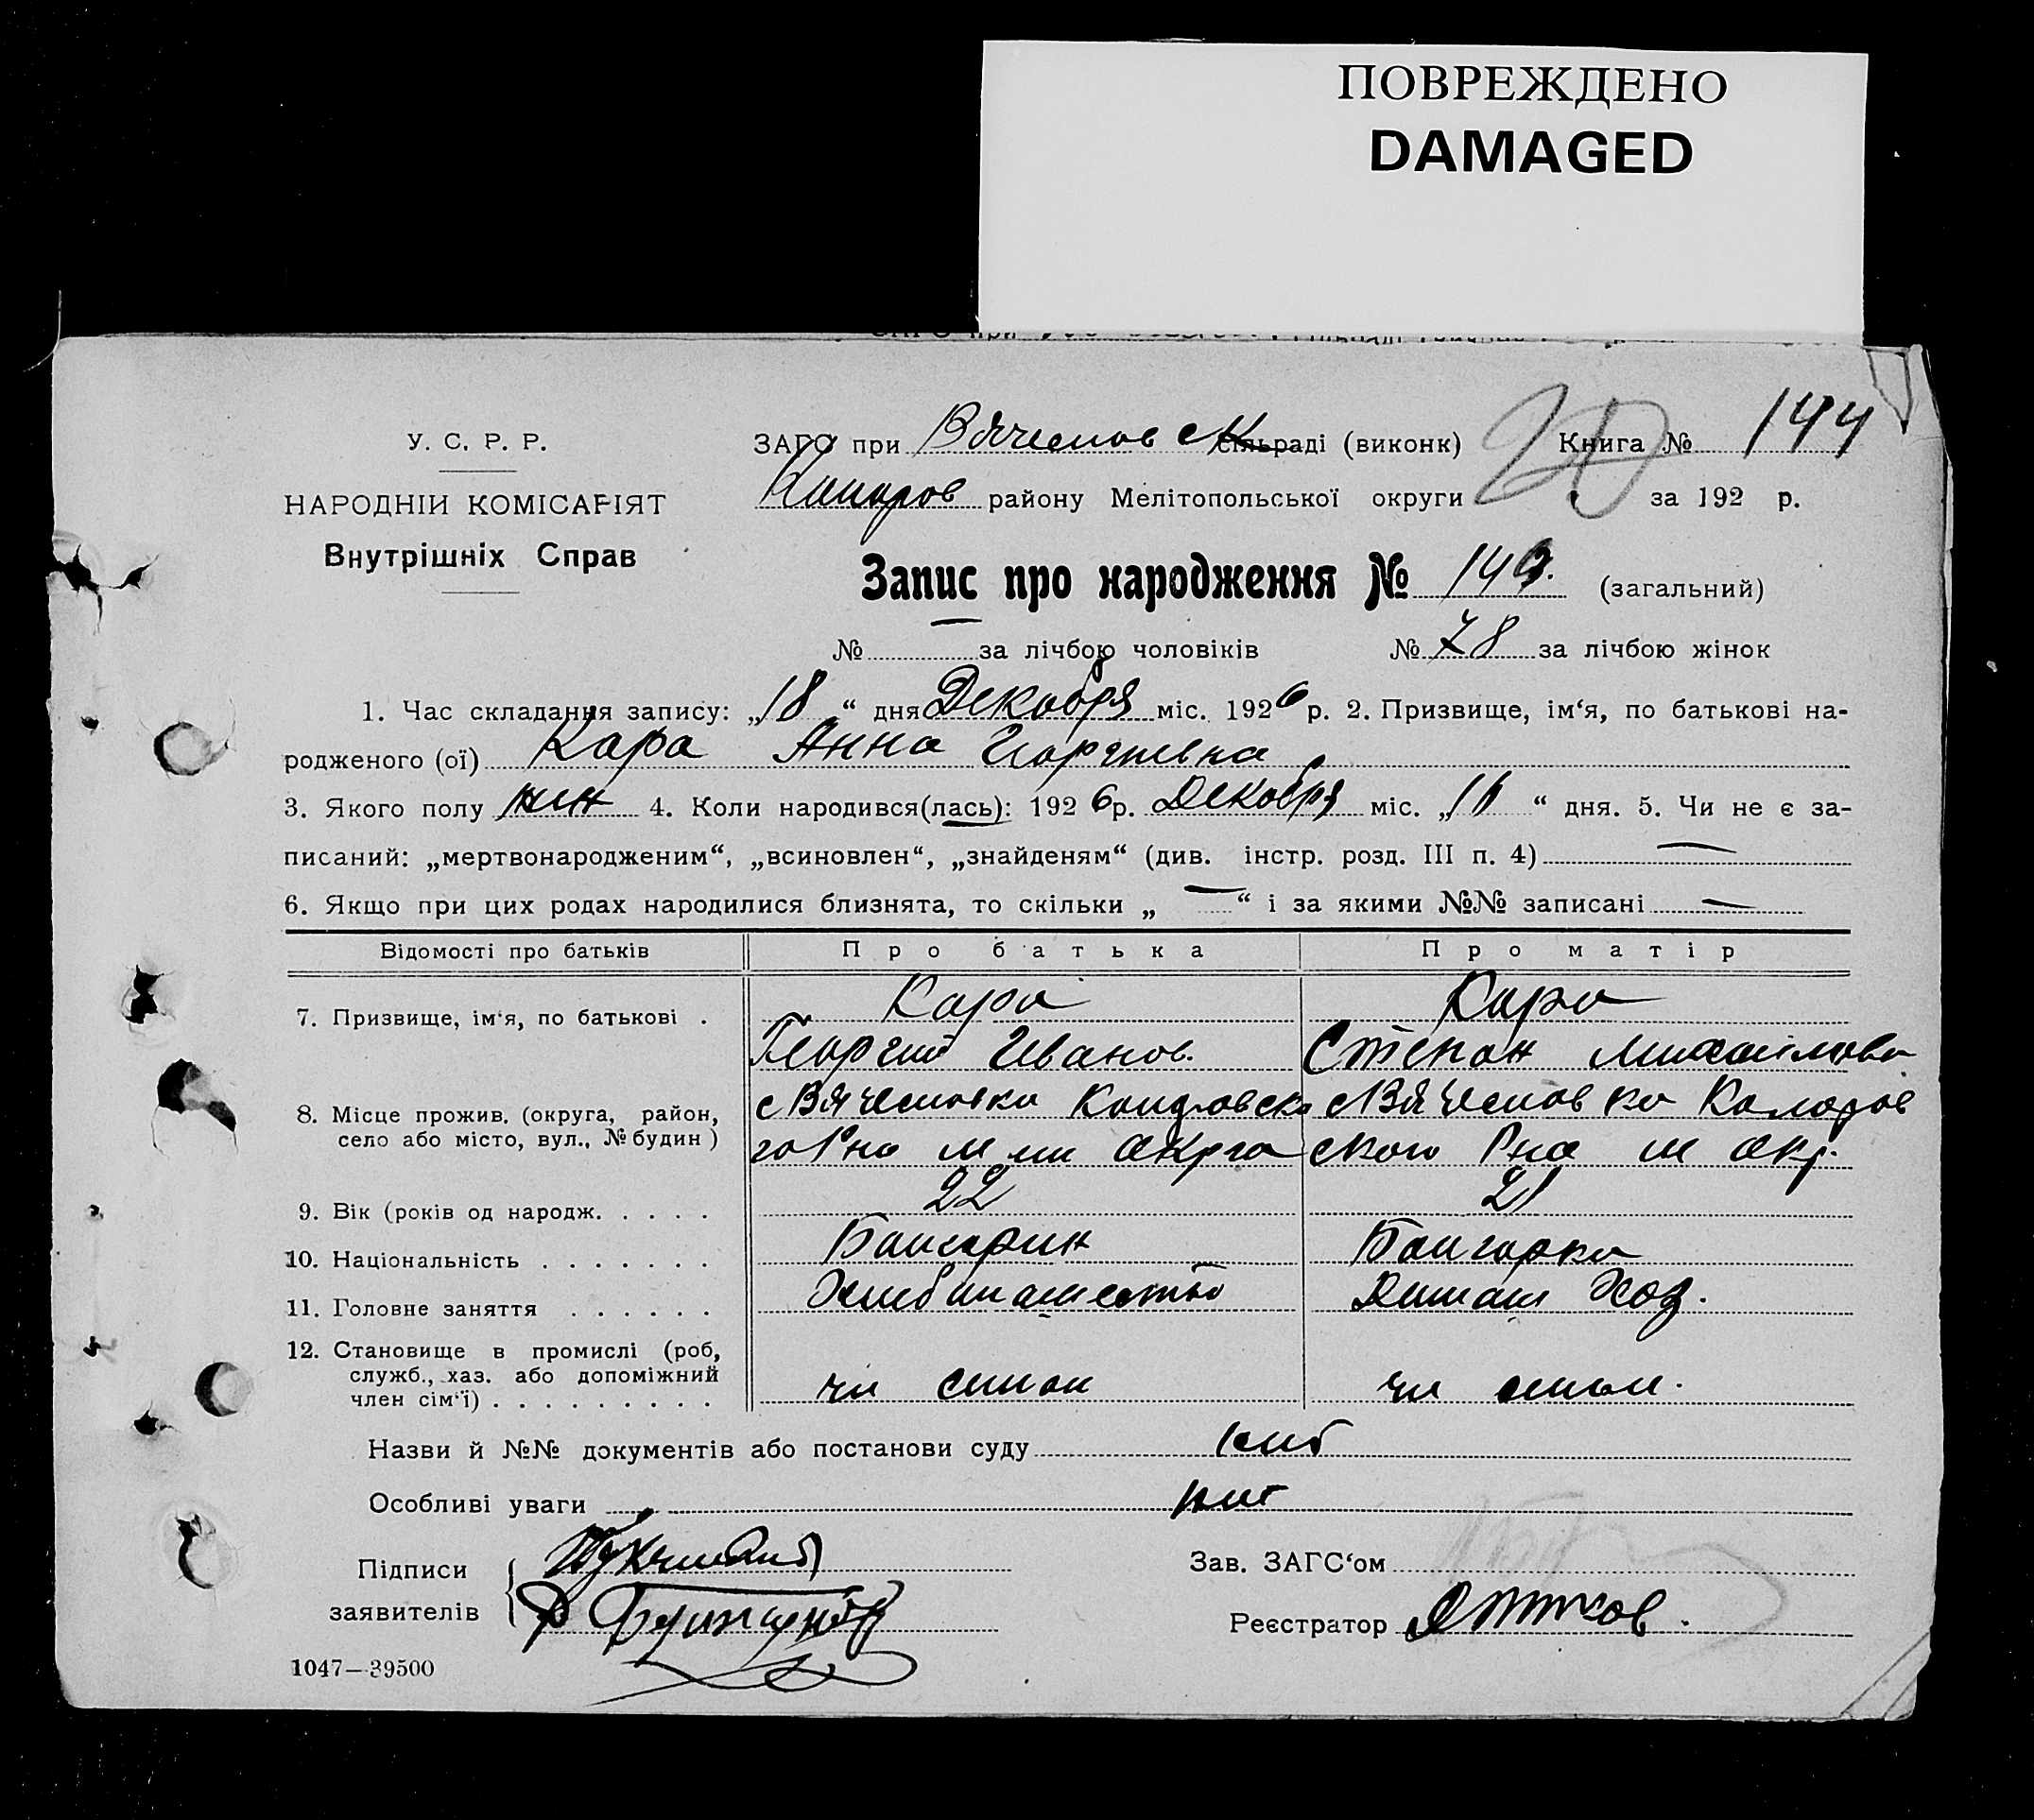 ПОВРЕЖДЕНО
DAMAGED
У. С. Р. Р.
НАРОДНІЙ КОМІСАРІЯТ
Внутрішніх Справ
ЗАГС при Вячеслов ск сільраді (виконк) Книга № 144
20
району Мелітопольської округи за 192 р.
Запис про народження № 149. (загальний)
№ — за лічбою чоловіків № 78 за лічбою жінок
1. Час складання запису: „18“ дня Декабря міс. 1926 р. 2. Призвище, ім‘я, по батькові на-
родженого (ої) Кара Анна Георгиевна
3. Якого полу жен 4. Коли народився(лась): 1926 р. Декабря міс. „16“ дня. 5. Чи не є за-
писаний: „мертвонародженим“, „всиновлен“, „знайденям“ (див. інстр. розд. III п. 4) —
6. Якщо при цих родах народилися близнята, то скільки „—“ і за якими №№ записані —
Відомості про батьків Про батька Про матір
7. Призвище, ім‘я, по батькові . Кара Кара
Георгий Иванов. Степан Михайловн
8. Місце прожив. (округа, район, с Вячеславка с Вячеславка
село або місто, вул., № будин) го Р-на окрга ского Р-на м окр.
9. Вік (років од народж. . . . . 22 21
10. Національність . . . . . . . Болгарин Болгарка
11. Головне заняття . . . . . . Хлебопашество Домаш Хоз.
12. Становище в промислі (роб,
служб., хаз. або допоміжний
член сім‘ї) . . . . . . . . . чл семьи чл семьи.
Назви й №№ документів або постанови суду нет
Особливі уваги нет
Підписи
заявителів
Зав. ЗАГС‘ом
Реєстратор
1047—39500